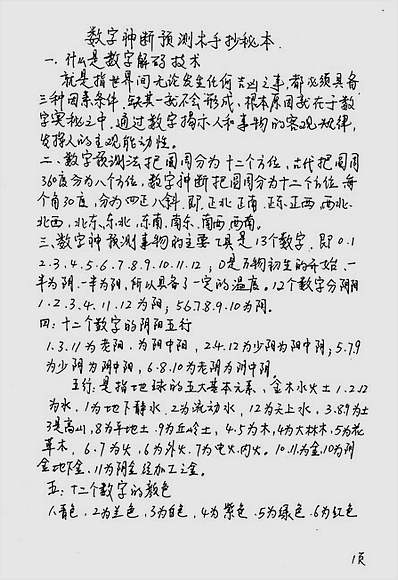 数字神断预测术手抄秘本.
一、什么是数字解码技术
就是指世界间无论发生任何吉凶之事,都必须具备
三种因素条件,缺其一就不会形成、根本原因就在于数
字奥秘之中,通过数字揭示人和事物的客观规律,
发挥人的主观能动性。
二、数字预测法把圆周分为十二个方位,古代把圆周
360度分为八个方位,数字神断把圆周分为十二个方位每
个角30度,分为四正八斜.即.正北.正南.正东.正西.西北.
北西,北东、东北,东南.南东.南西.西南。
三、数字神预测事物的主要工具是13个数字.即0.1
2.3.4.5.6.7.8.9.10.11.12;0是万物初生的开始、一
半为阴、一半为阳,所以具备了一定的温度。12个数字分阴阳
1.2.3.4.11.12为阳;5.6.7.8.9.10为阴。
四:十二个数字的阴阳五行
1.3.11为老阳.为阳中阳,2.4.12为少阴为阳中阴;5.7.9
为少阴为阴中阳,6.8.10为老阴为阴中阴。
五行:是指地球的五大基本元素,金木水火土1.2.12
为水,1为地下静水.2为流动水,12为天上水,3.8.9为土
3是高山,8为平地土.9为丘岭土,4.5为木,4为大林木,5为花
草木,6.7为火,6为外火.7为电火.内火。10.11.为金.10为阴
金地下金,11为阳金经加工之金。
五:十二个数字的颜色
1.青色,2为兰色,3为白色,4为紫色.5为绿色.6为红色
1页